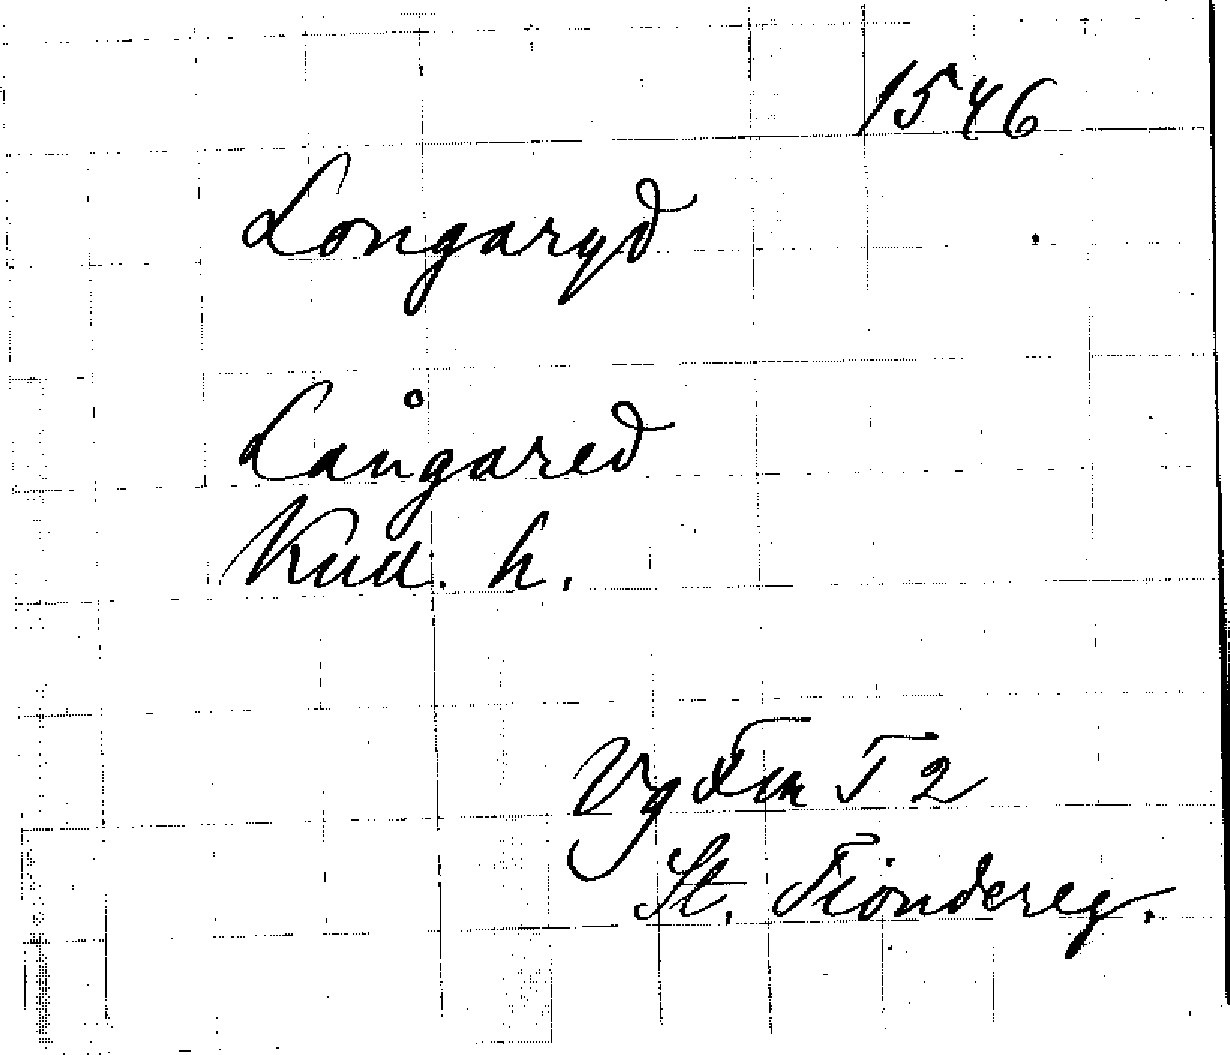 1546
Longaryd
Långared
Kud. h.
Vg Fm T 2
St. Tiondereg.